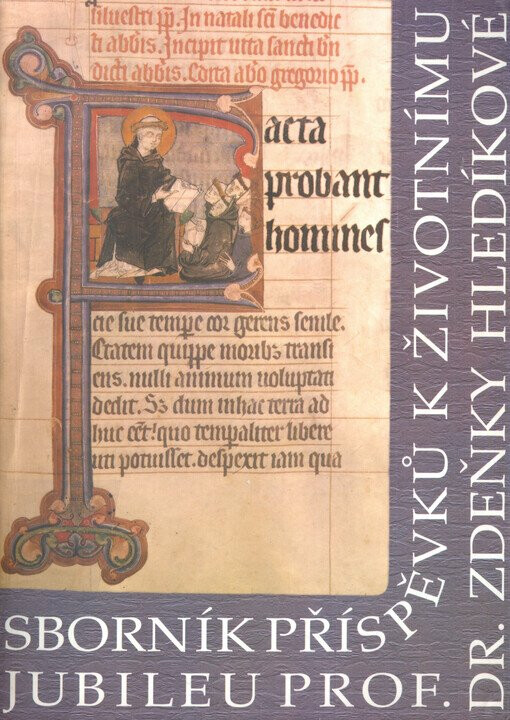 siluestri pp. In natali sci benedic
ti abbis. Incipit uita sancti bn
dicti abbis. Edita a bo gregorio pp.
Facta
probant
homines
cie sue tempe cor gerens senile.
Etatem quippe moribz transi
ens. nulli animum uoluptati
dedit. Sz dum in hac terra ad
huc eet! quo temporaliter libere
uti potuisset. despexit iam qua
SBORNÍK PŘÍSPĚVKŮ K ŽIVOTNÍMU
JUBILEU PROF. DR. ZDEŇKY HLEDÍKOVÉ